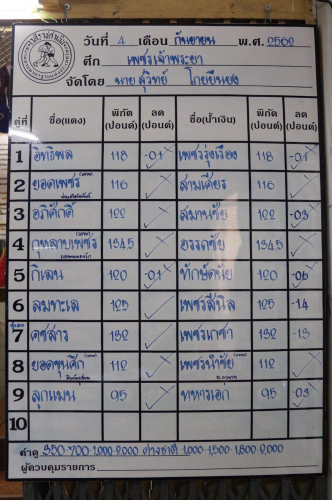 วันที่ 4 เดือน กันยายน พ.ศ. 2562
ศึก เพชรเจ้าพระยา
จัดโดย นาย สุวิทย์
คู่ที่ ชื่อ(แดง) พิกัด (ปอนด์) ลด (ปอนด์) ชื่อ(น้ำเงิน) พิกัด (ปอนด์) ลด (ปอนด์)
1 อิทธิพล 118 -0.1 เพชรรุ่งเรือง 118 -0.1
2 ยอดเพชร 116 สามเคียร 116
3 อภิศักดิ์ 122 สมานชัย 122 -0.3
4 กุหลาบเพชร 134.5 อรรถชัย 134.5
5 กิเลน 120 -0.1 ทักษ์ดนัย 120 -0.6
6 ลมทะเล 125 เพชรสีนิล 125 -1.4
คู่เอก
7 คชสาร 132 เพชรเกษา 132
8 ยอดขุนศึก 112 เพชรนำชัย 112
9 ลูกแมน 95 ทหารเอก 95 -0.3
10
ค่าดู 350-700-1,000-2,000 ต่างชาติ 1,000-1,500-1,800-2,000
ผู้ควบคุมรายการ